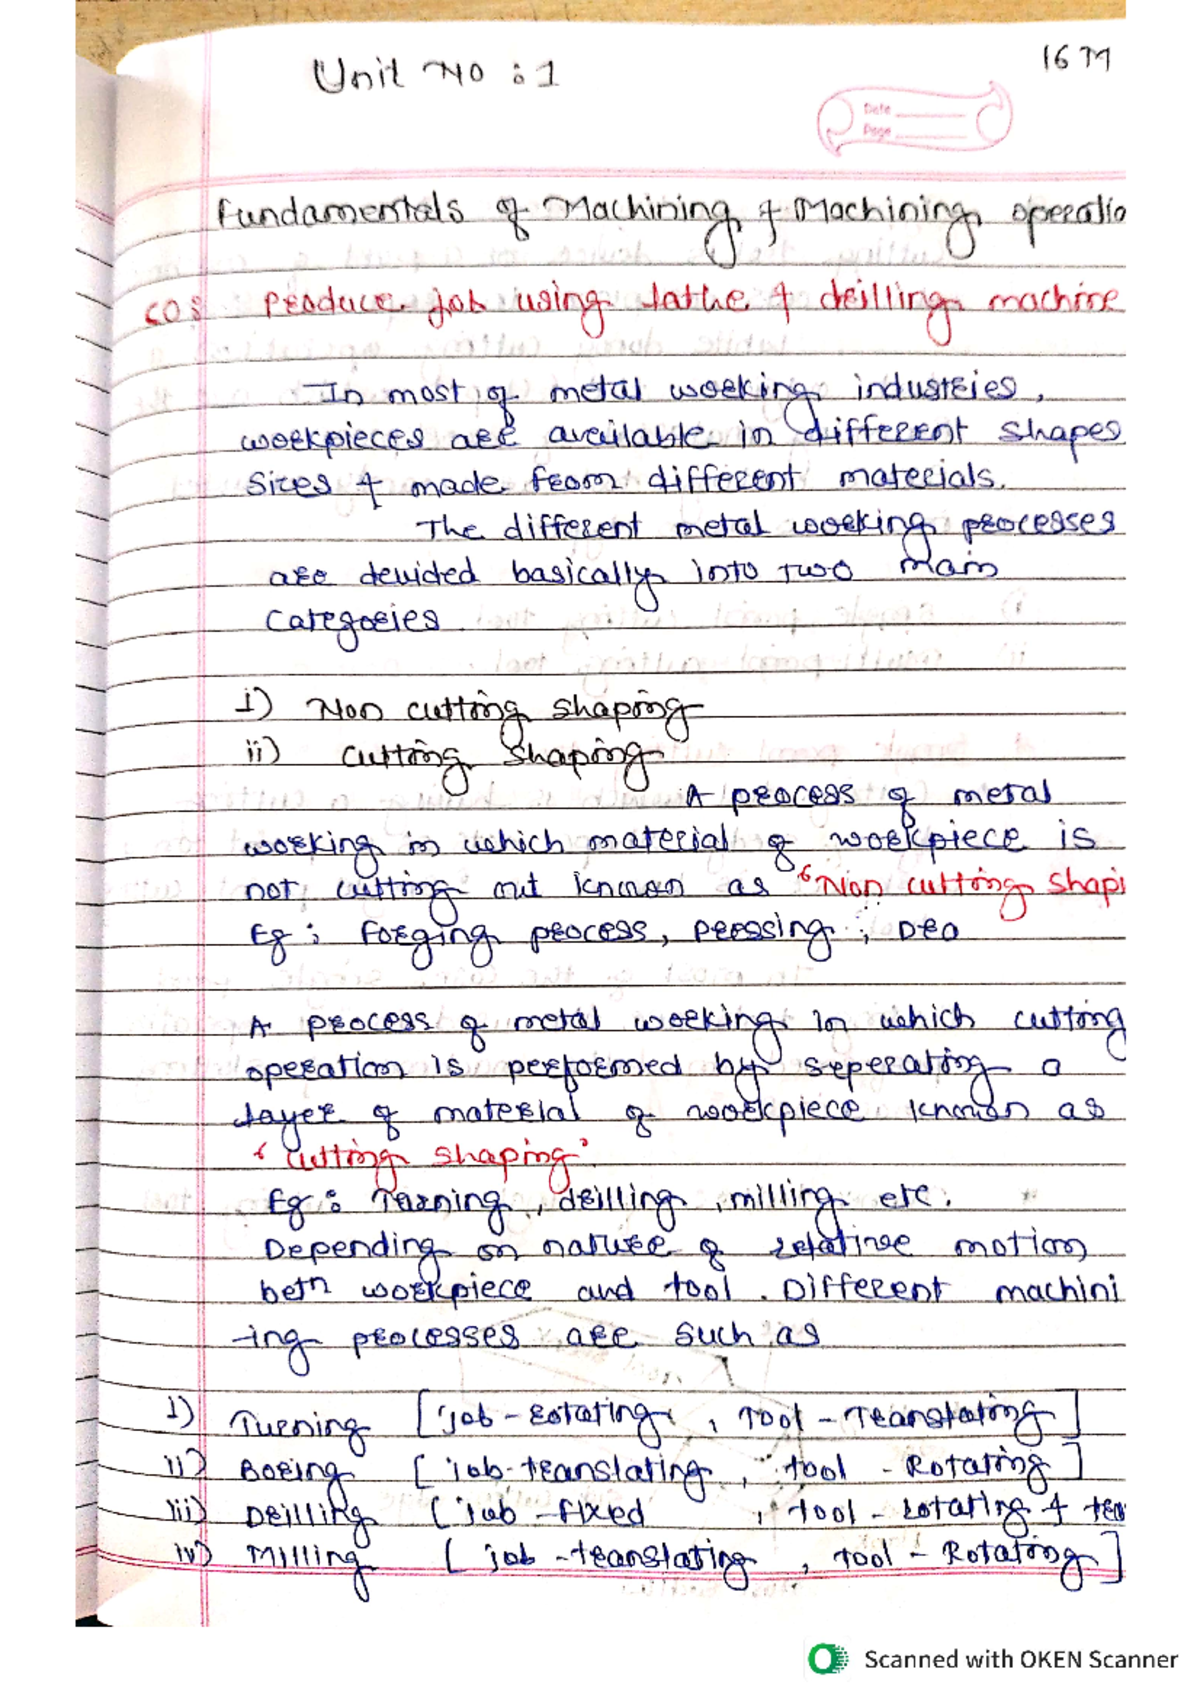 Unit No : 1
16 M
Date
Page
Fundamentals of Machining & Machining operatio
CO : Produce job using lathe & drilling machine
In most of metal working industries,
workpieces are available in different shapes
sizes & made from different materials.
The different metal working processes
are devided basically into two main
categories.
i) Non cutting shaping
ii) cutting shaping
A process of metal
working in which material of workpiece is
not cutting out known as "Non cutting shapi
Eg : forging process, pressing, Dra
A process of metal working in which cutting
operation is performed by seperating a
layer of material of workpiece known as
"cutting shaping"
Eg : Turning, drilling, milling etc.
Depending on nature of relative motion
betn workpiece and tool. Different machini
-ing processes are such as
i) Turning [job - rotating, Tool - Translating]
ii) Boring [job - translating, tool - Rotating]
iii) Drilling [job - fixed, tool - rotating & tra
iv) Milling [job - translating, tool - Rotating]
Scanned with OKEN Scanner